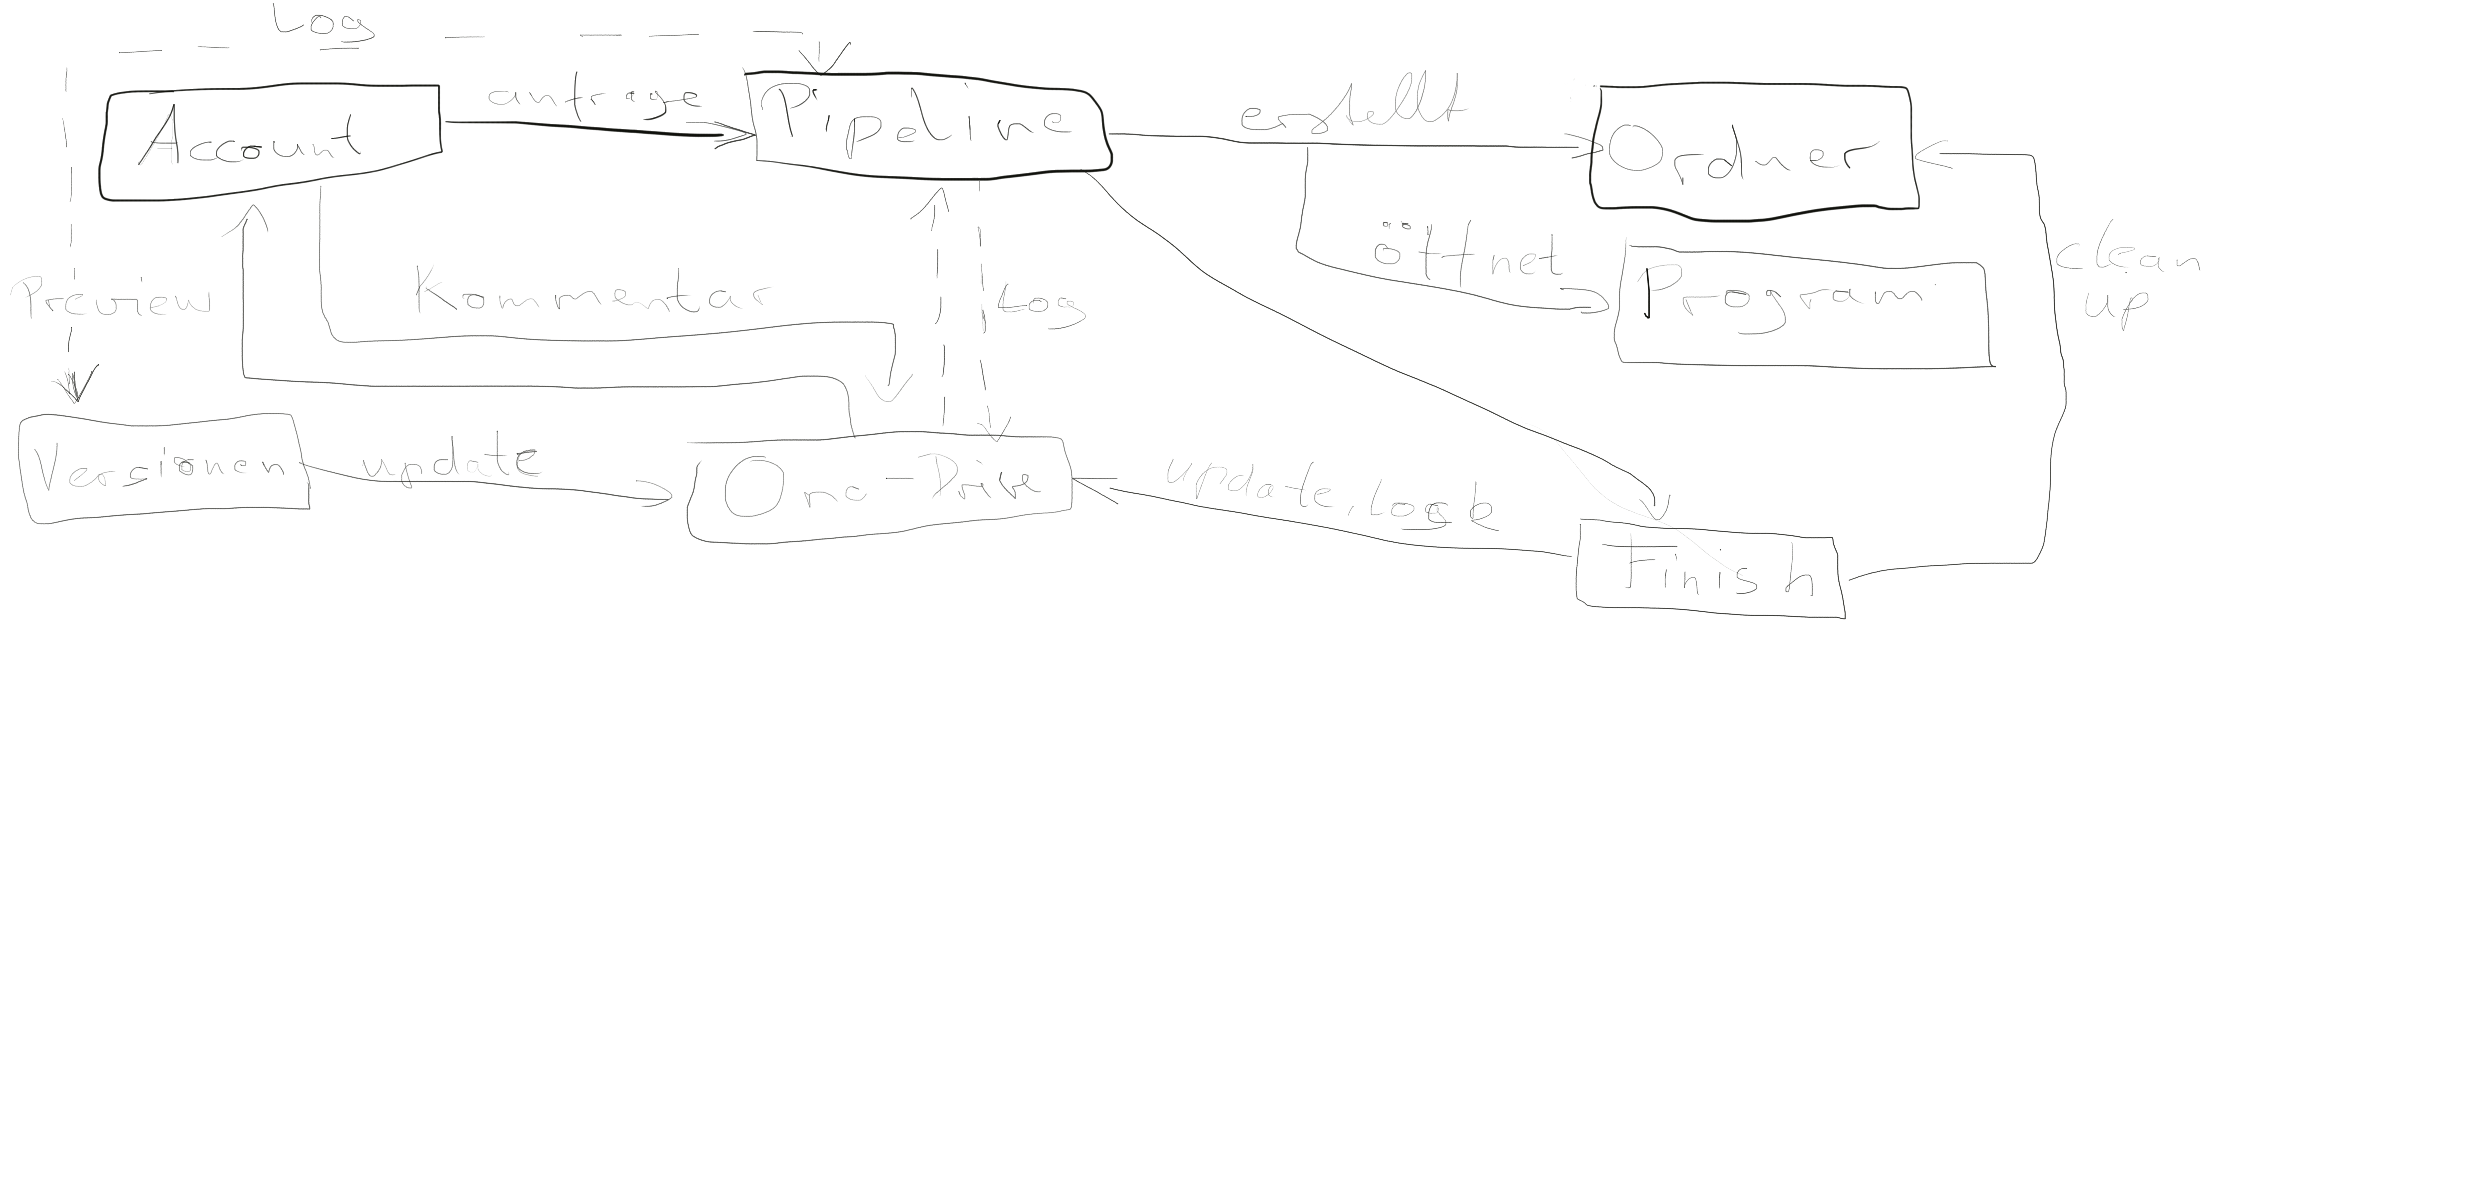 Log
Account
anfrage
Pipeline
erstellt
Ordner
öffnet
Program
clean
up
Preview
Kommentar
Log
Versionen
update
One-Drive
update,
Finish